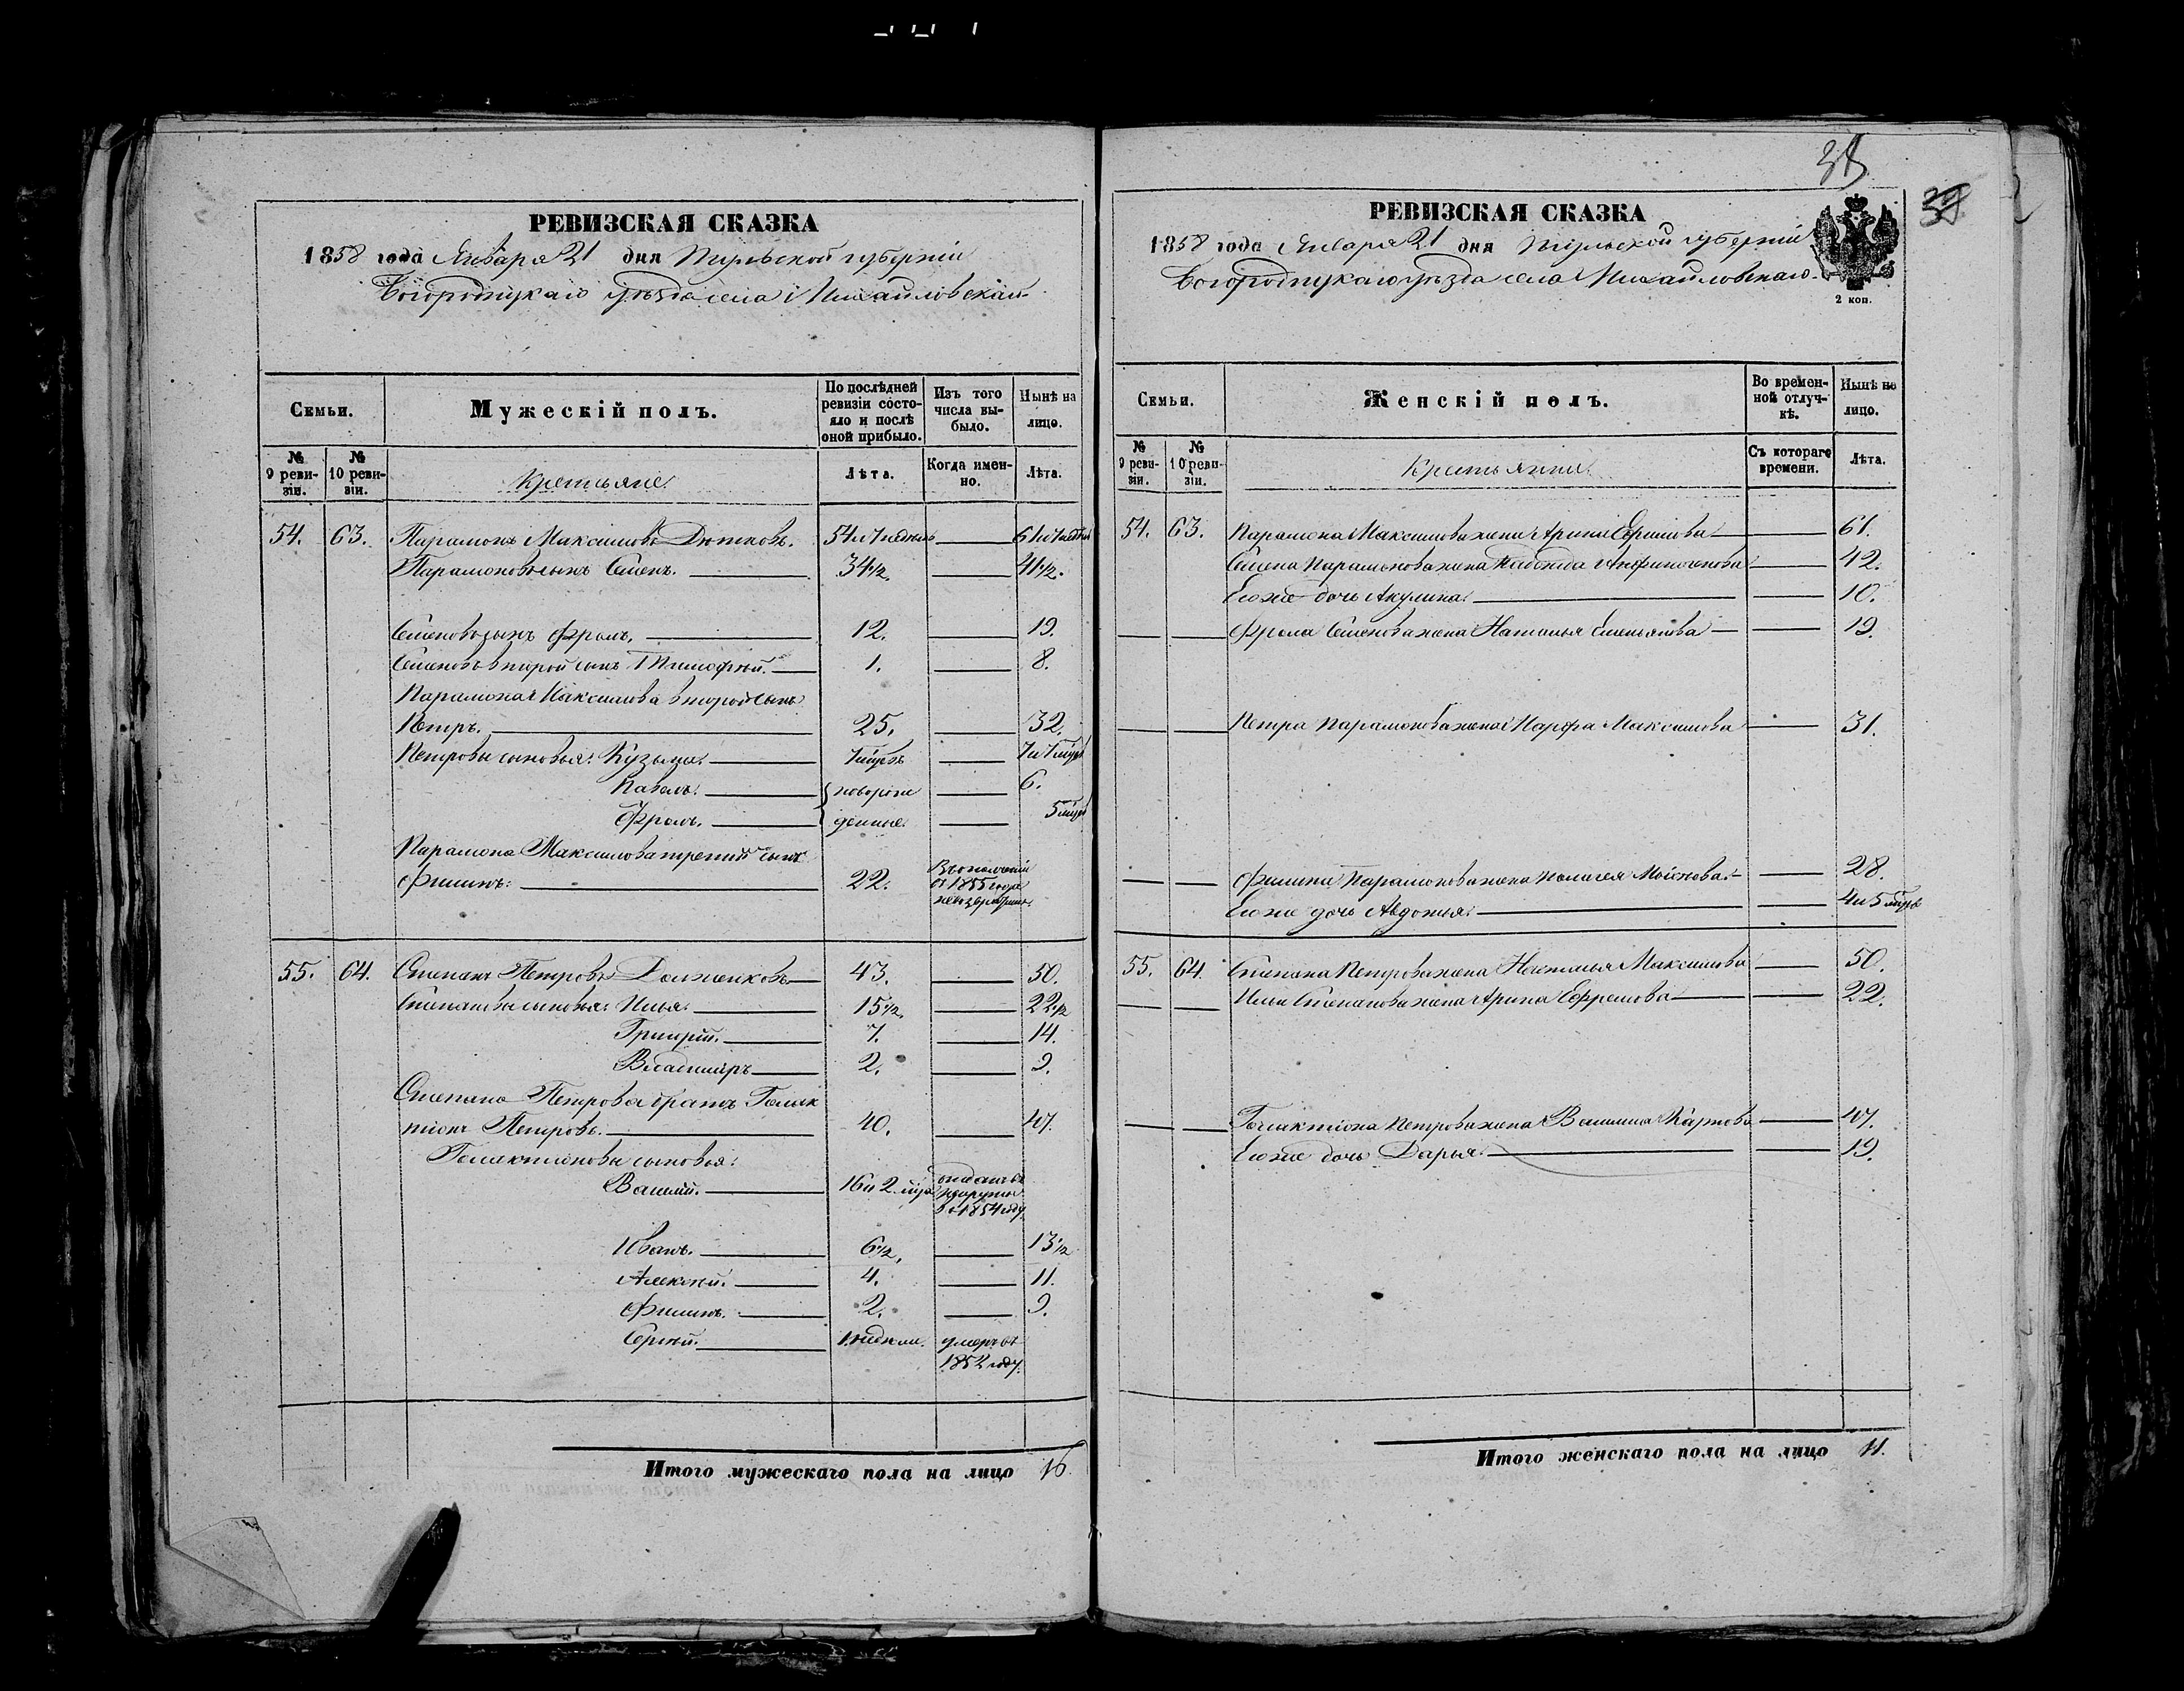 РЕВИЗСКАЯ СКАЗКА
1858 года Января 21 дня Тульской губерніи
Богородицкаго уѣзда села Михайловскаго
Семьи.
Мужескій полъ.
По послѣдней ревизіи состояло и послѣ оной прибыло.
Изъ того числа выбыло.
Нынѣ на лицо.
№ 9 ревизіи.
№ 10 ревизіи.
Крестьяне.
Лѣта.
Когда именно.
Лѣта.
54. 63. Парамонъ Максимовъ 54 и 61 и
Парамоновъ сынъ Семенъ. 34 1/2. 41 1/2.
Семеновъ сынъ Фролъ. 12. 19.
Семеновъ второй сынъ Тимофѣй. 1. 8.
Парамона Максимова второй сынъ
Петръ. 25. 32.
Петровы сыновья: Кузьма.
Павелъ. новорож 6.
Фролъ. денные.
Парамона Максимова третий сынъ
Филипъ: 22. 1855 года
55. 64. Степанъ Петровъ Долженковъ 43. 50.
Степановы сыновья: Илья. 15 1/2. 22 1/2
Григорій. 7. 14.
Владимиръ 2. 9.
Степана Петрова братъ Галак
тіонъ Петровъ. 40. 47.
Галактионовы сыновья:
Василій. 16 и 2 отданъ въ рекруты в 1854 году
Иванъ. 6 1/2. 13 1/2
Алексѣй. 4. 11.
Филипъ. 2. 9.
Сергѣй. 1 недели. умеръ въ
1852 году.
Итого мужескаго пола на лицо 16.
38
РЕВИЗСКАЯ СКАЗКА
1858 года Января 21 дня Тульской губерніи
Богородицкаго уѣзда села Михайловскаго.
2 коп.
Семьи.
Женскій полъ.
Во временной отлучкѣ.
Нынѣ на лицо.
№ 9 ревизіи.
№ 10 ревизіи.
Съ котораго времени.
Лѣта.
54. 63. Парамона Максимова жена Арина Ефимова 61.
Семена Парамонова жена 42.
Его же дочь Акулина. 10.
Фрола Семенова жена Наталья Емельянова 19.
Петра Парамонова жена Марфа Максимова 31.
Филипа Парамонова жена Пелагея 28.
Его же дочь Авдотья. 4 и 5
55. 64. Степана Петрова жена Наталья Максимова 50.
Ильи Степанова жена Арина Ефремова 22.
Галактіона Петрова жена Василиса Карпова 47.
Его же дочь Дарья. 19.
Итого женскаго пола на лицо 11.